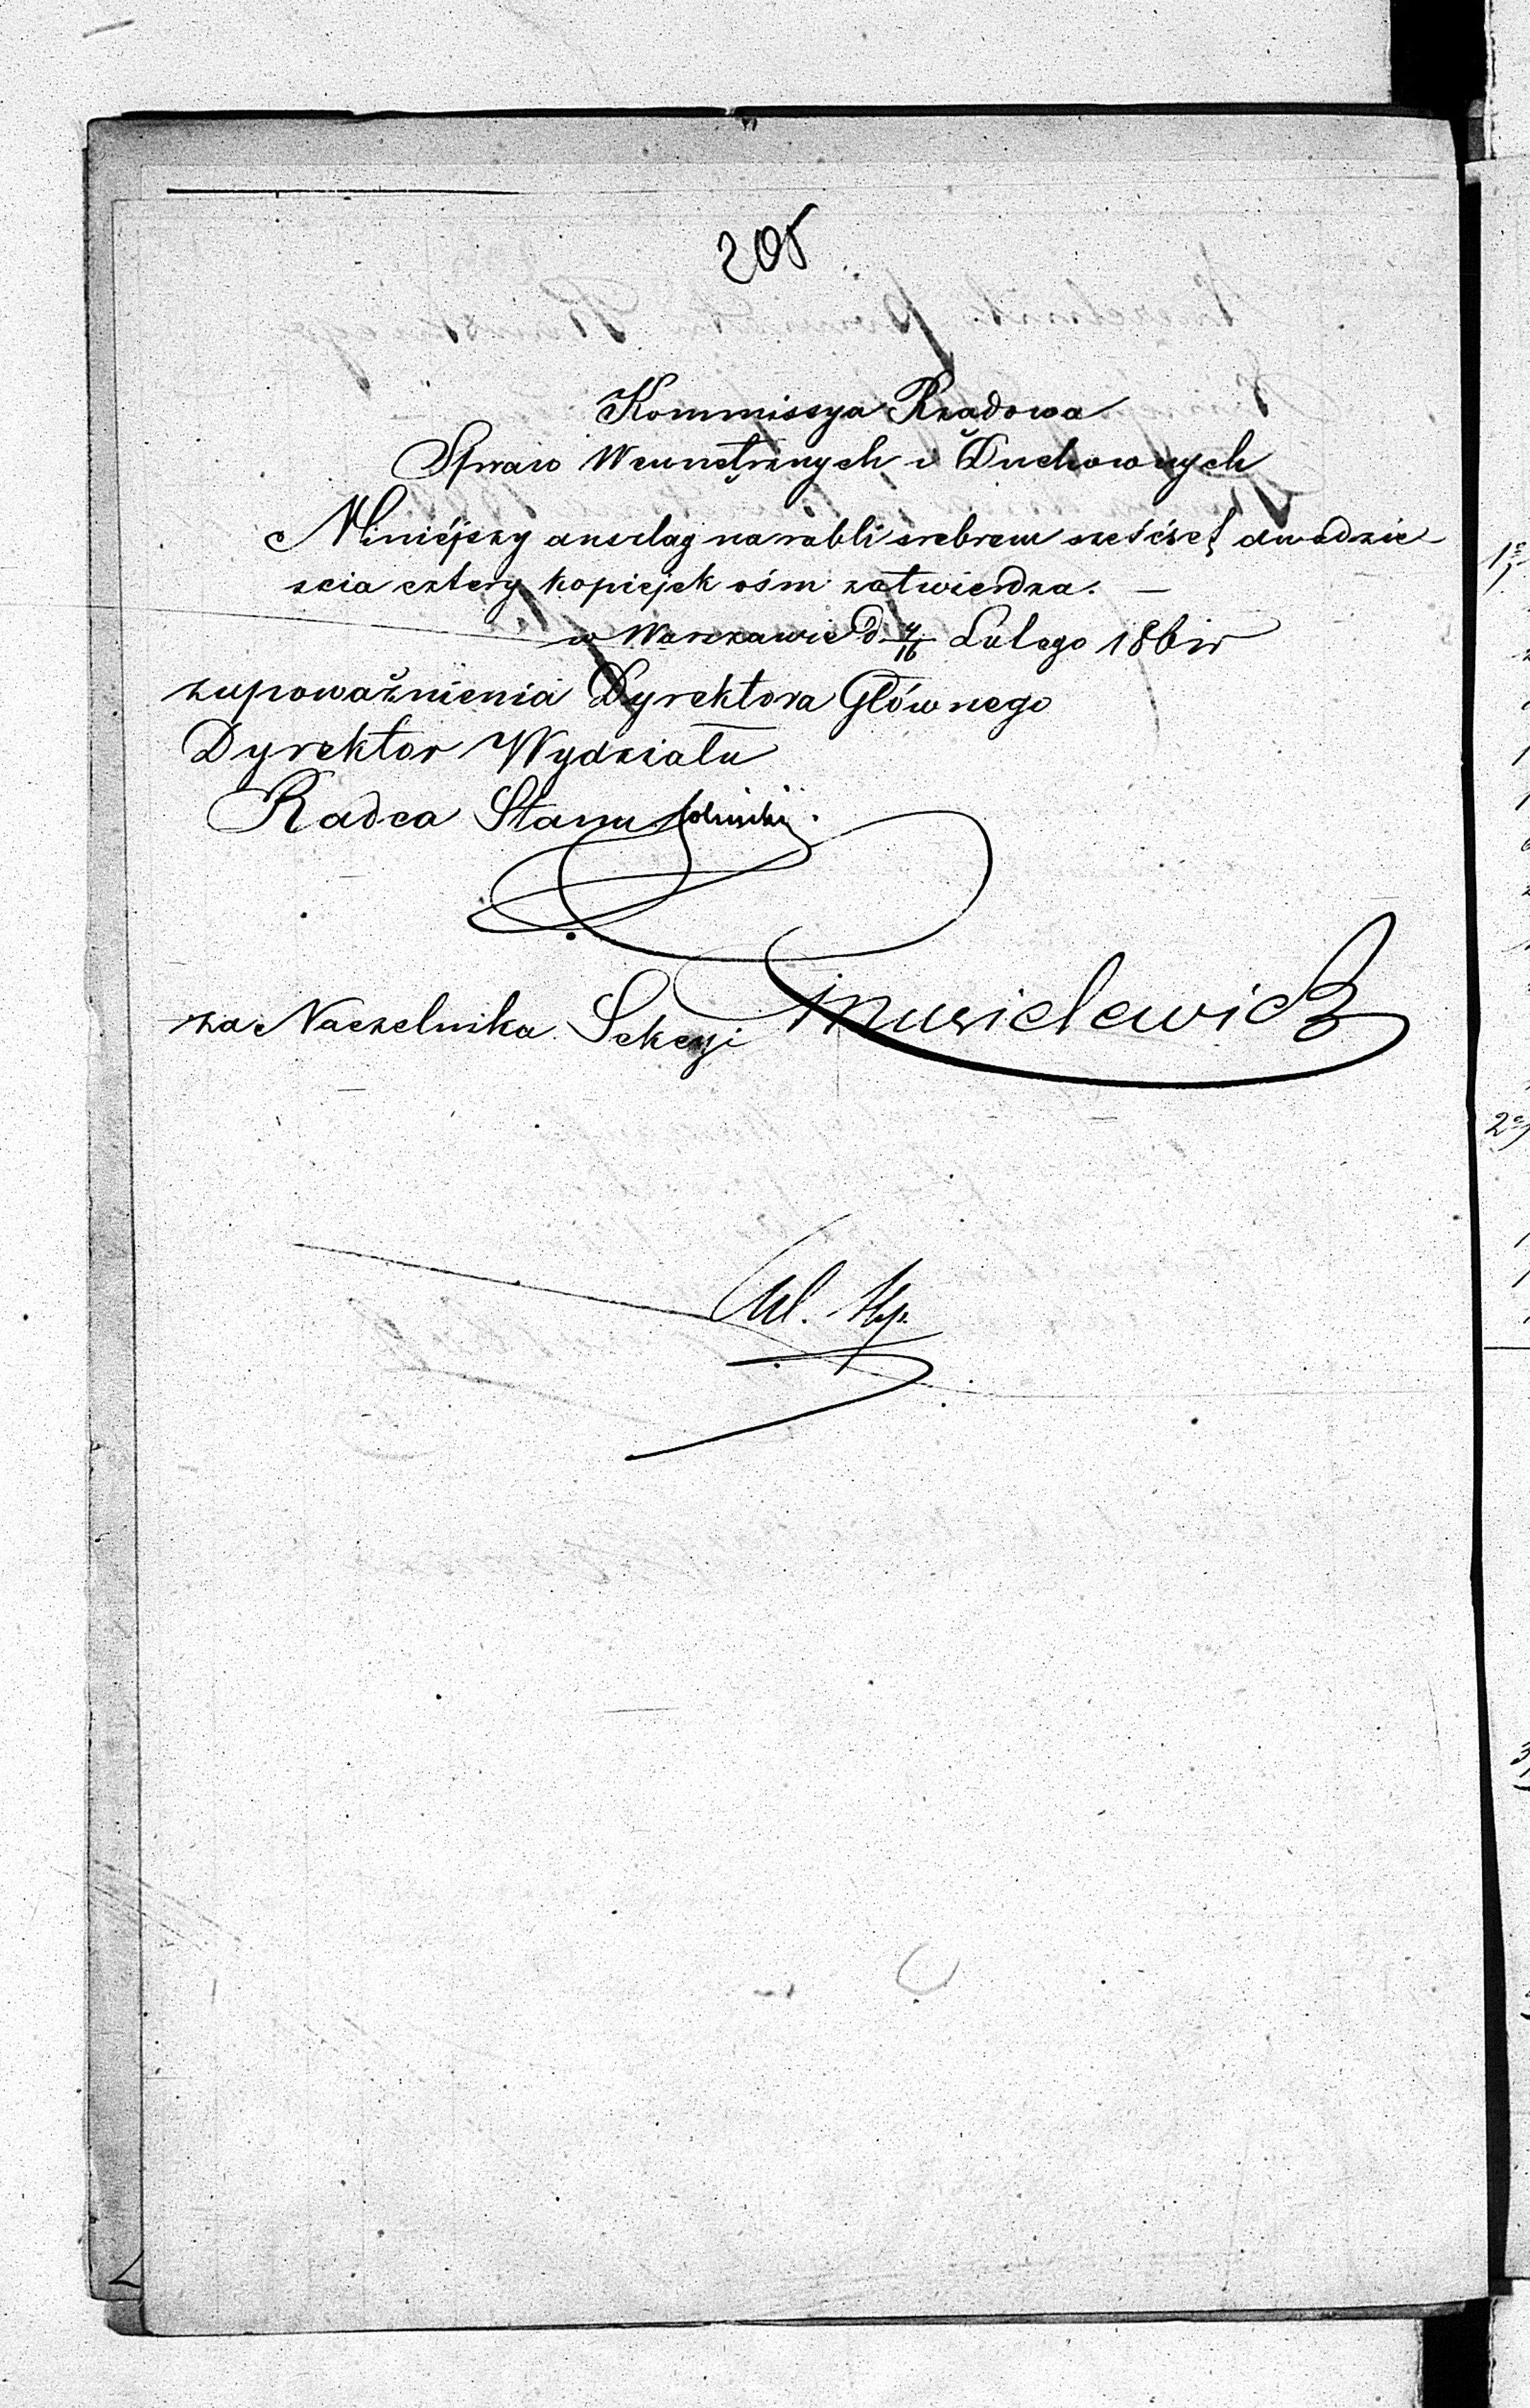 205
Kommissya Rządowa
Spraw Wewnętrznych i Duchownych
Niniéjszy anszlag na rubli srebrem sześćset dwadzie-
scia cztery kopiejek ośm zatwierdza. —
w Warszawie d 4/16 Lutego 1861r
z upoważnienia Dyrektora Głównego
Dyrektor Wydziału
Radca Stanu
za Naczelnika Sekcyi Musielewicz